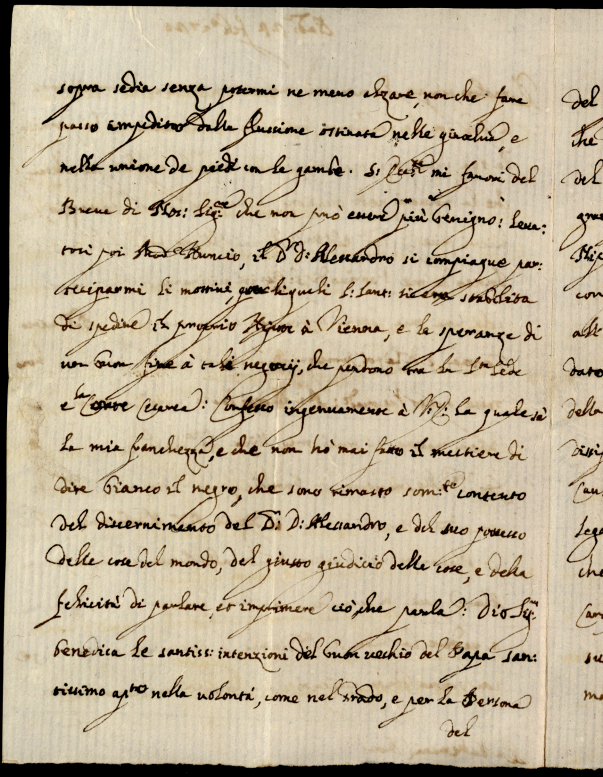 sopra sedia senza potermi ne meno alzare, non che fare
passo impedito dalla flussione ostinata nelle ginochia, e
nella unione de piedi con le gambe. S. Ecc.za mi favorì del
Breve di Nos: Sig.re che non può essere più benigno: leva:
tosi poi Mons.r Nuncio, il D. Alessandro si compiaque par:
teciparmi li mottivi, per li quali S: Sant: si era stabilita
di spedire il proprio Nipote à Vienna, e le speranze di
un buon fine à tali negozij, che pendono tra la S.ta Sede
e la Corte Cesarea: Confesso ingenuamente à V: la quale sà
la mia franchezza, e che non hò mai fatto il mestiere di
dire bianco il negro, che sono rimasto som:te contento
del discernimento del D. Alessandro, e del suo possesso
delle cose del mondo, del giusto giudicio delle cose, e della
felicità di parlare, et imprimere ciò, che parla: Dio Sig.r
benedica le santiss: intenzioni del buon vecchio del Papa san:
tissimo nella volontà, come nel grado, e per la Persona
del
del
che
del
gra
con
dato
della
Lege
che
su